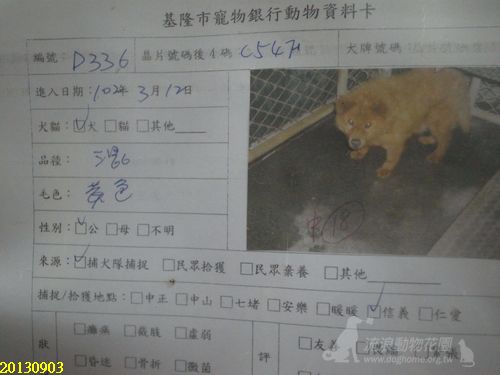 基隆市寵物銀行動物資料卡
編號： D336 晶片號碼後4碼 C547 犬牌號碼
進入日期：102年3月12日
犬貓：☑犬 □貓 □其他
品種：
毛色： 黃色
性別：☑公 □母 □不明
來源：☑捕犬隊捕捉 □民眾拾獲 □民眾棄養 □其他
捕捉/拾獲地點：□中正 □中山 □七堵 □安樂 □暖暖 ☑信義 □仁愛
狀 □癱瘓 □截肢 □虛弱 評 □友善
□昏迷 □骨折 □黴菌
18
流浪動物花園
www.doghome.org.tw
20130903